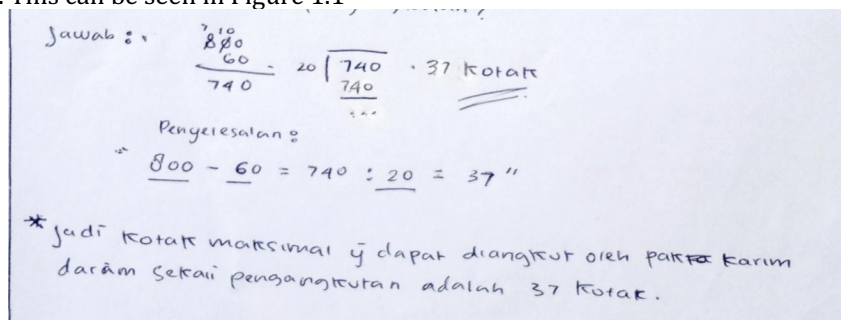 . This can be seen in Figure 1.1
Jawab :.
7 10
800
60
740
20 740 . 37 Kotak
740
...
Penyelesaian :
800 - 60 = 740 : 20 = 37 "
* Jadi Kotak maksimal yg dapat diangkut oleh pak Karim
dalam sekali pengangkutan adalah 37 Kotak.